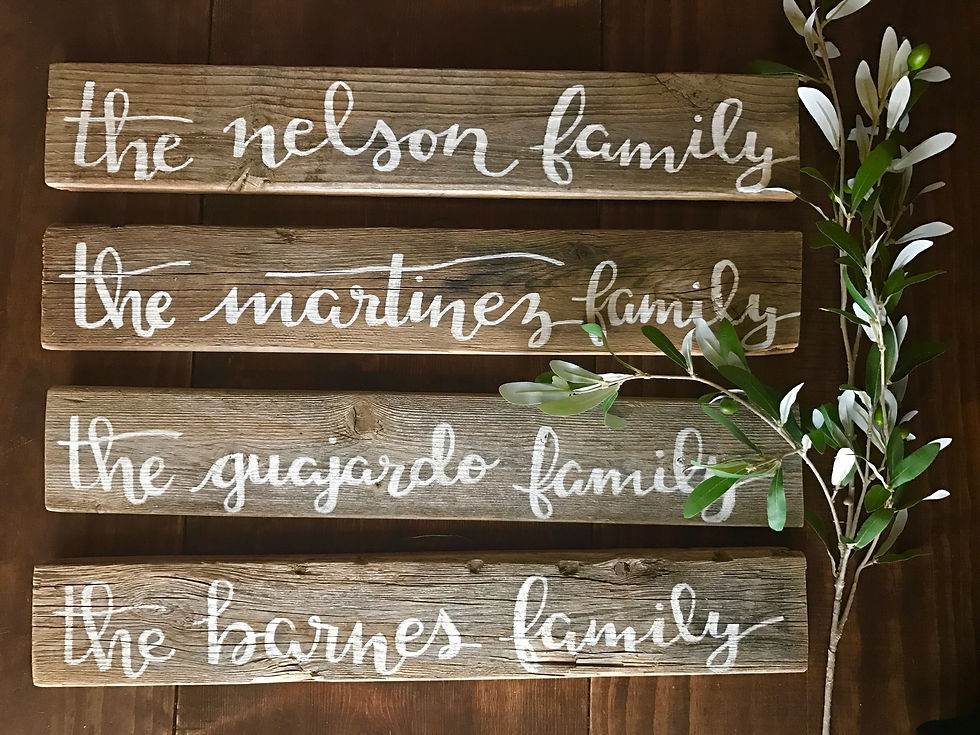 the nelson family
the martinez family
the guajardo family
the barnes family